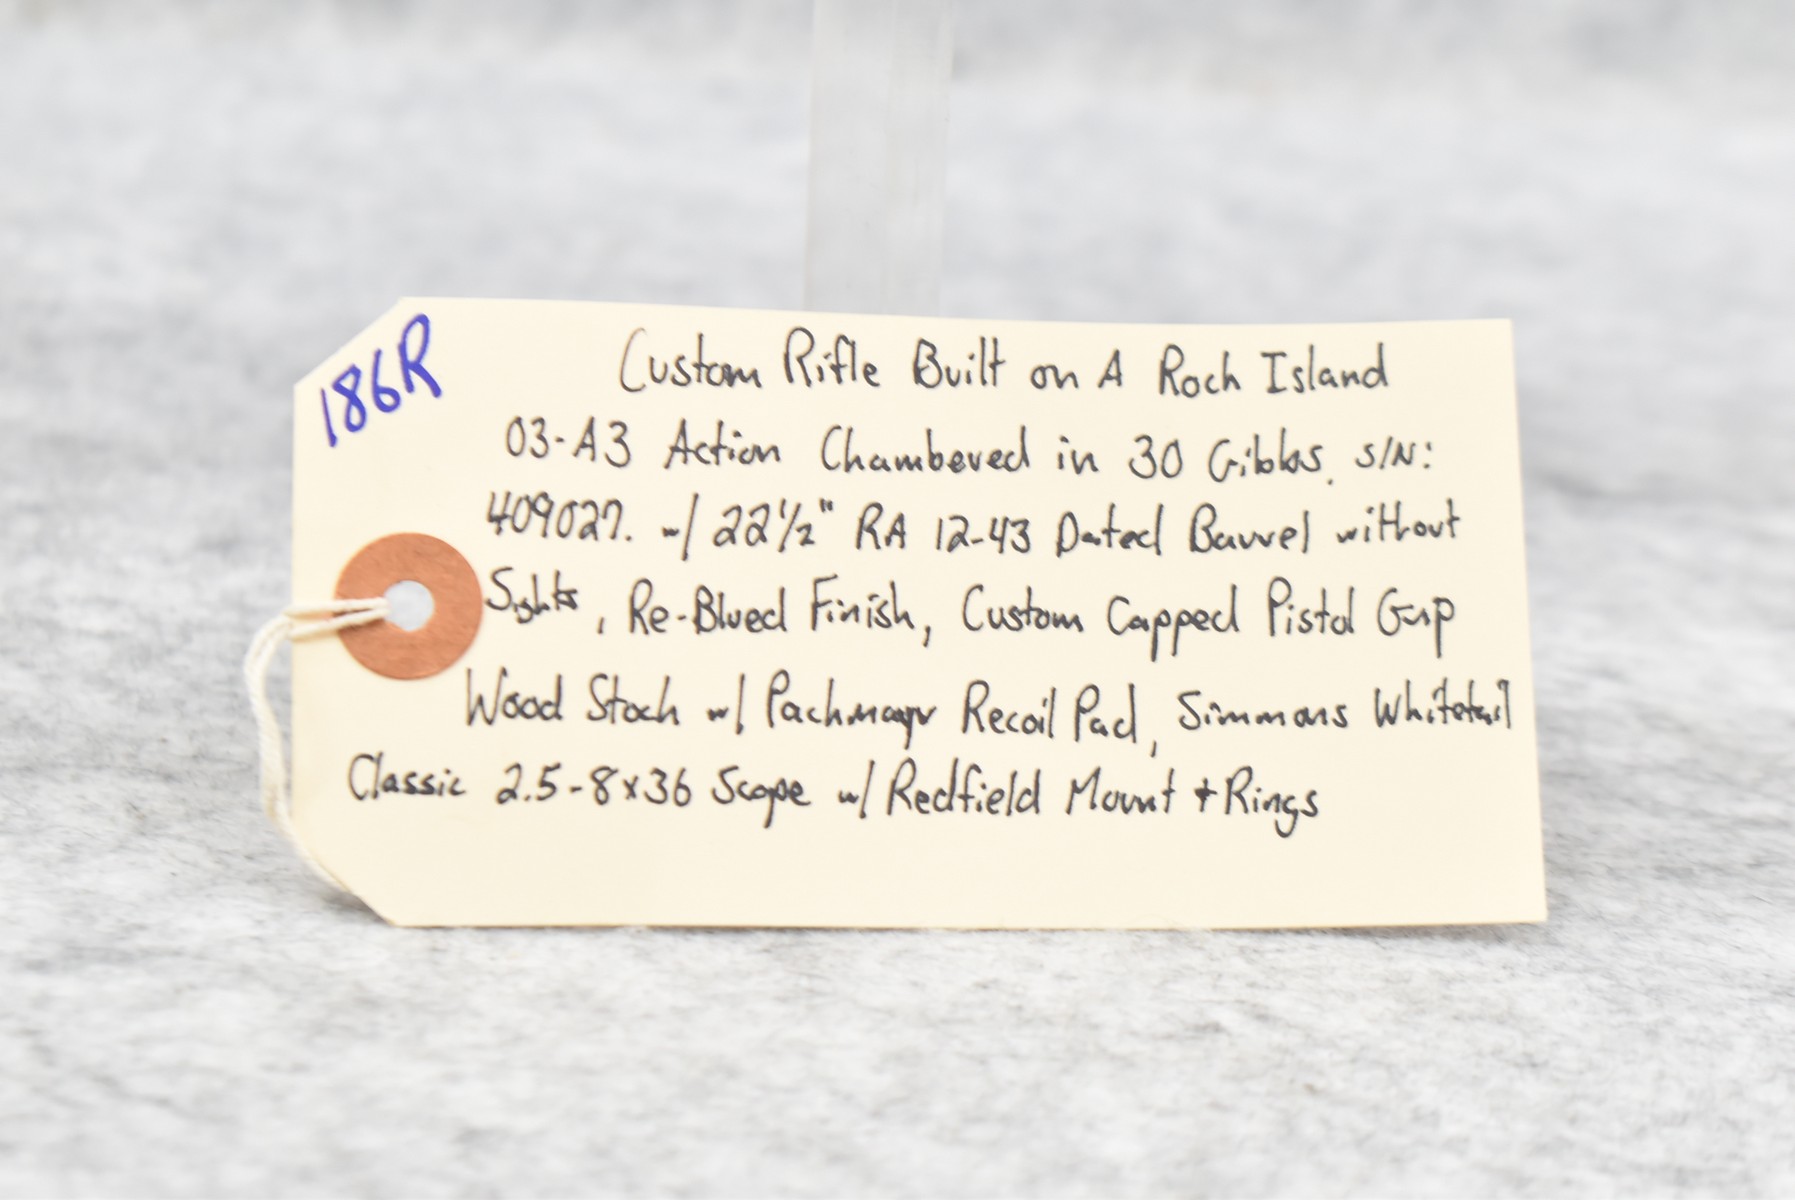 186R
Custom Rifle Built on A Rock Island
03-A3 Action Chambered in 30 Gibbs. S/N:
409027. w/ 22 1/2" RA 12-43 Dated Barrel without
Sights, Re-Blued Finish, Custom Capped Pistol Grip
Wood Stock w/ Pachmayr Recoil Pad, Simmons Whitetail
Classic 2.5-8x36 Scope w/ Redfield Mount + Rings